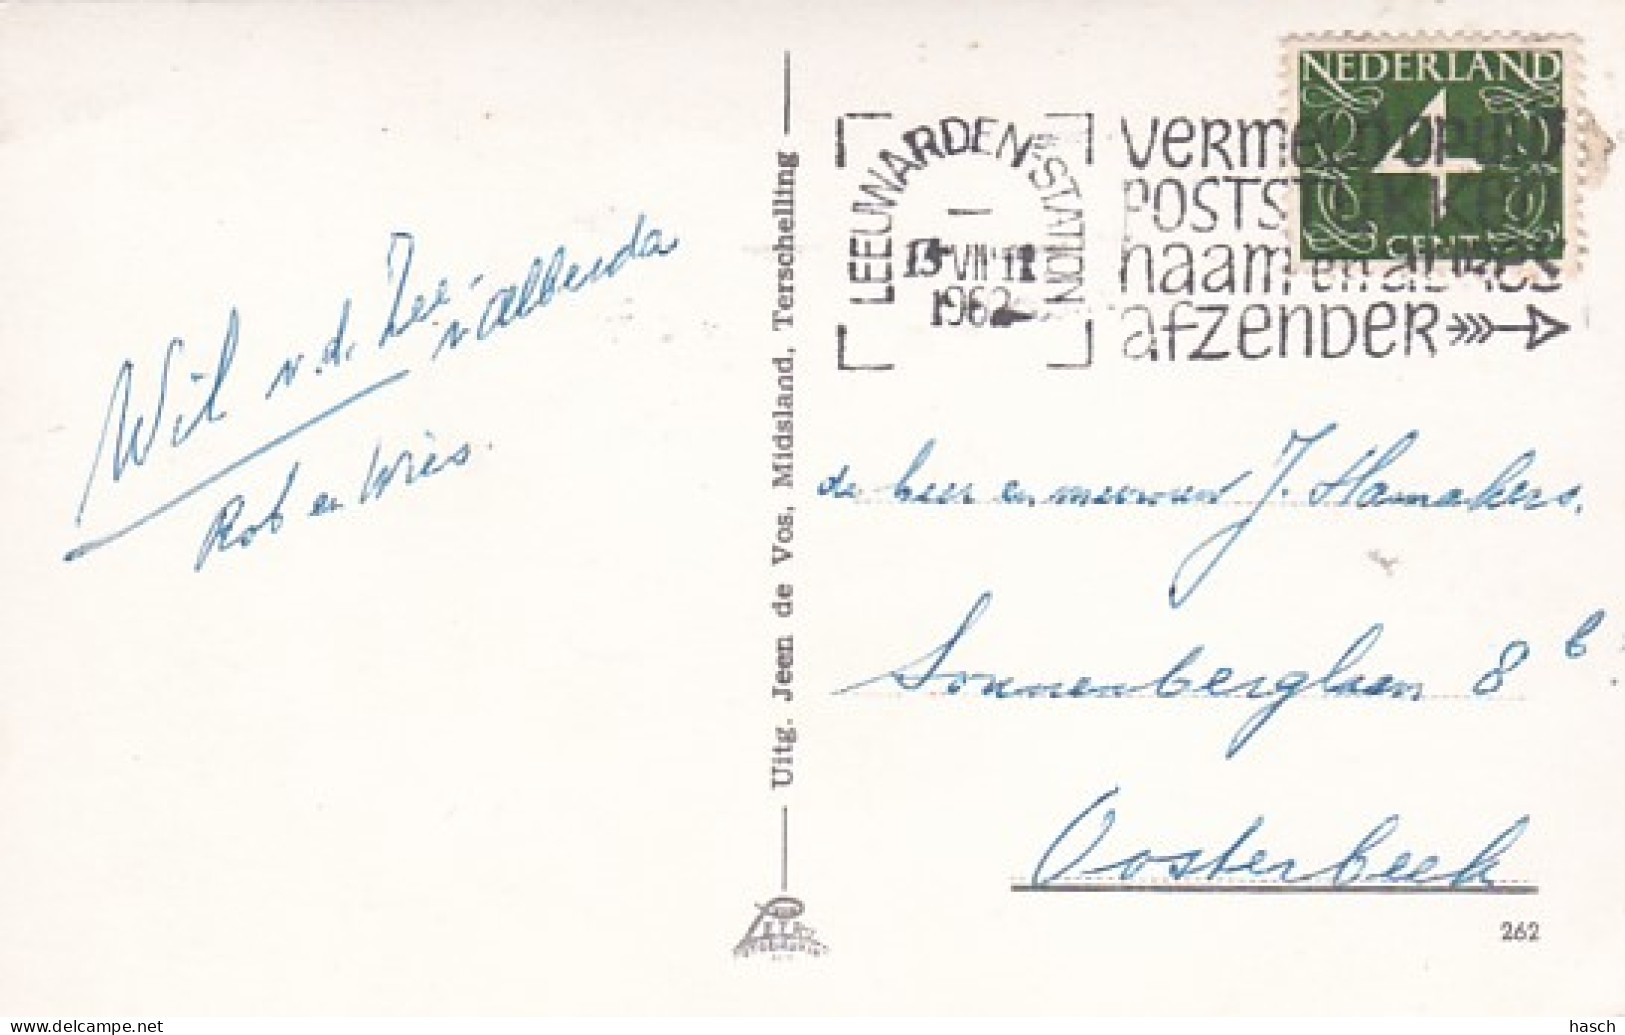 NEDERLAND
4
CENT
LEEUWARDEN-STATION
1962
VERMELD OP UW
POSTSTUKKEN
naam en adres
afzender
Wil v.d. Zee-
v Alberda
Rob en Kris.
Uitg. Jeen de Vos, Midsland, Terschelling
de heer en mevrouw J. Hamakers.
Sonnenberglaan 8 b.
Oosterbeek
262
www.delcampe.net
hasch